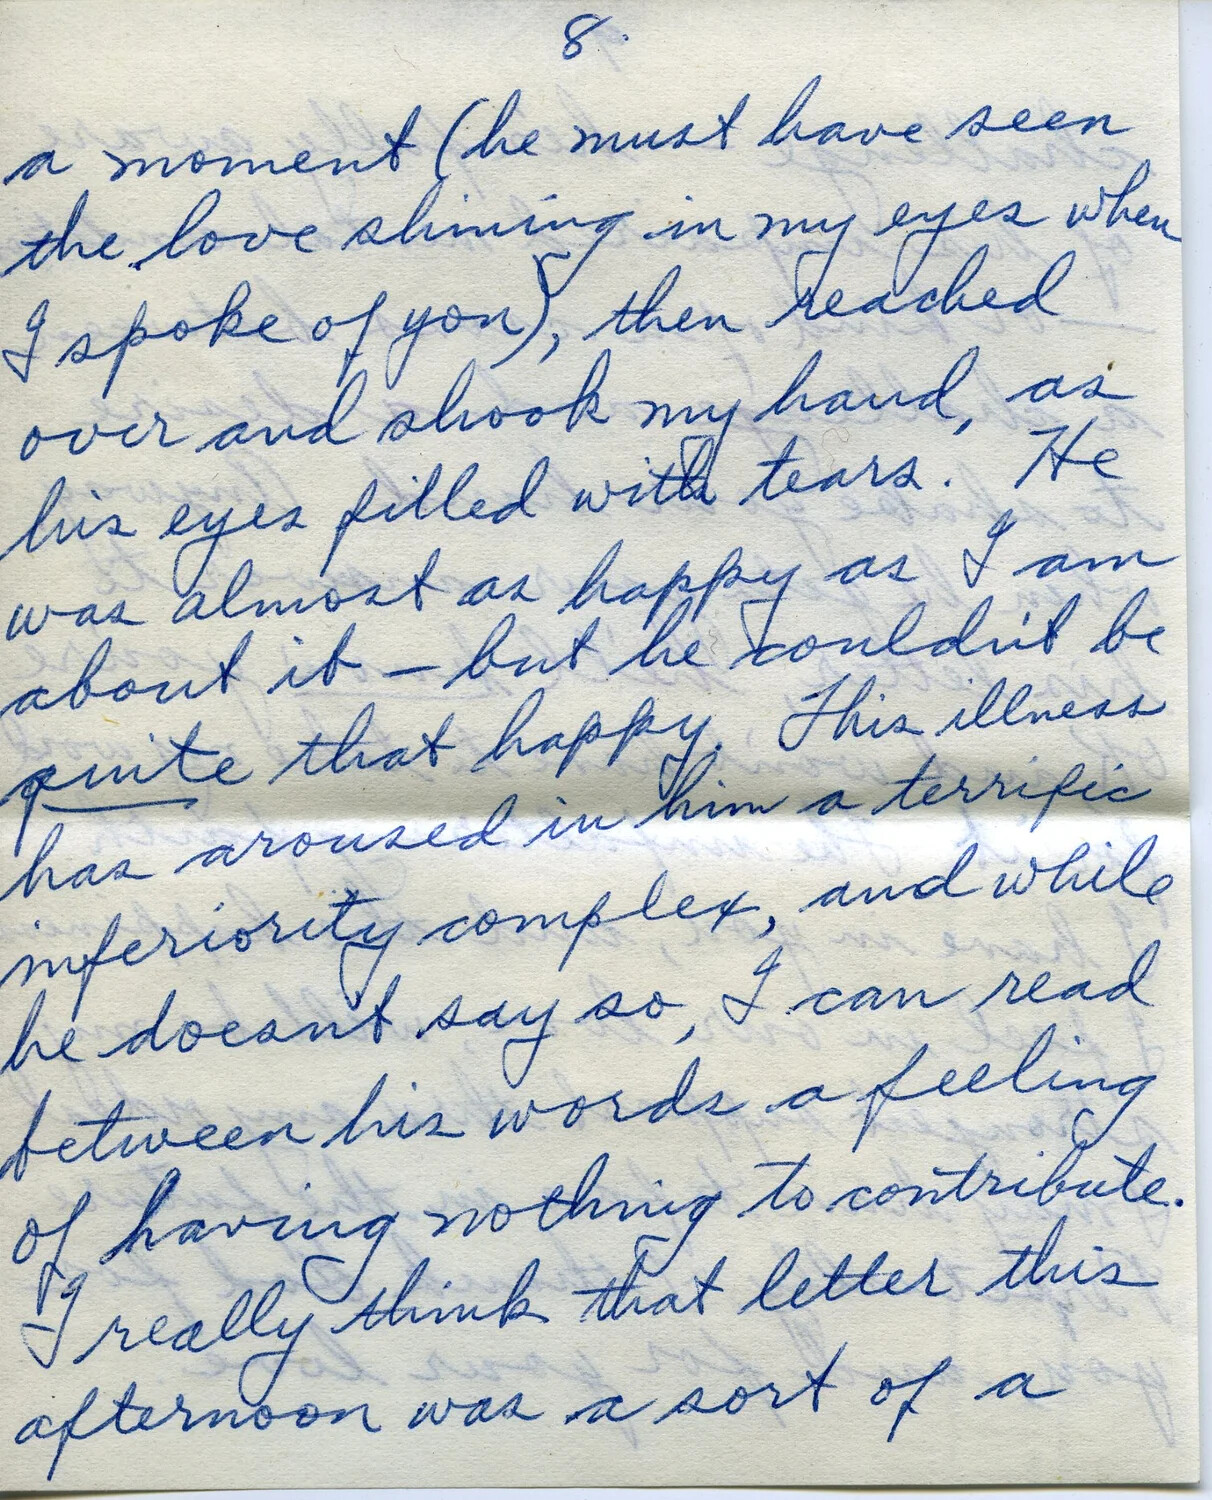 8.
a moment (he must have seen
the love shining in my eyes when
I spoke of you), then reached
over and shook my hand, as
his eyes filled with tears. He
was almost as happy as I am
about it – but he couldn't be
quite that happy. This illness
has aroused in him a terrific
inferiority complex, and while
he doesn't say so, I can read
between his words a feeling
of having nothing to contribute.
I really think that letter this
afternoon was a sort of a